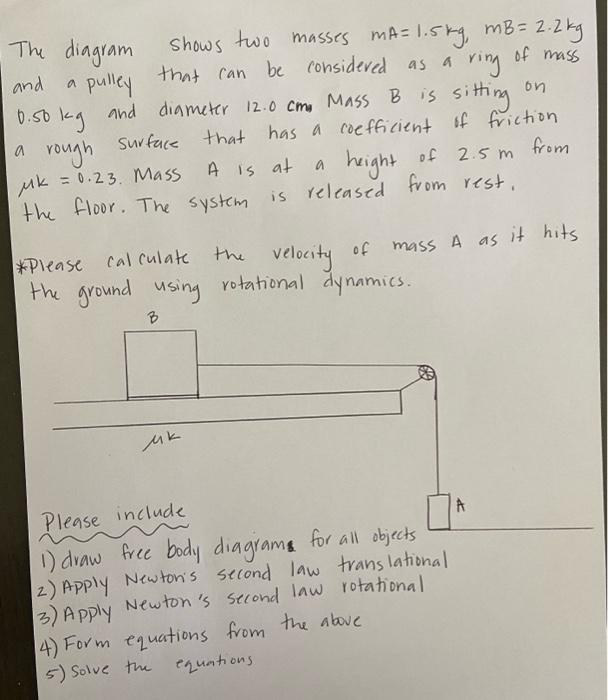 The diagram shows two masses mA = 1.5 kg, mB = 2.2 kg
and a pulley that can be considered as a ring of mass
0.50 kg and diameter 12.0 cm. Mass B is sitting on
a rough surface that has a coefficient of friction
μk = 0.23. Mass A is at a height of 2.5 m from
the floor. The system is released from rest.
*Please calculate the velocity of mass A as it hits
the ground using rotational dynamics.
B
μk
A
Please include
1) draw free body diagrams for all objects
2) Apply Newton's second law translational
3) Apply Newton's second law rotational
4) Form equations from the above
5) Solve the equations